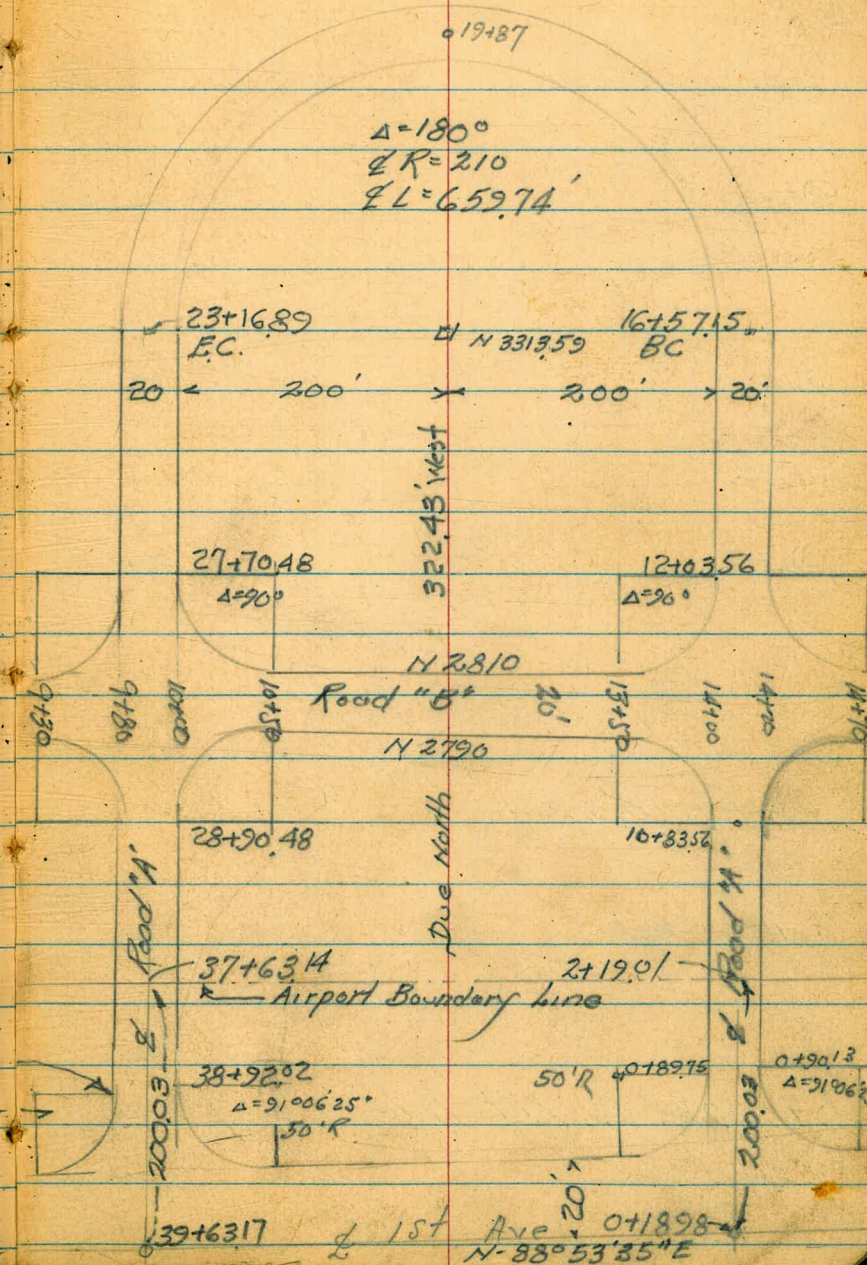 19+87
Δ=180°
℄ R=210
℄ L=659.74'
23+16.89
E.C.
N 3313.59
16+57.15
BC
20
200'
200'
20'
322.43' West
27+70.48
Δ=90°
12+03.56
Δ=90°
N 2810
Road "B"
20'
9+30
9+80
10+00
10+50
13+50
14+00
14+20
14+70
N 2790
28+90.48
10+83.56
Due North
Road "A"
Road "A"
37+63.14
2+19.01
Airport Boundary Line
38+92.02
Δ=91°06'25"
50'R
50'R
0+89.75
0+90.13
Δ=91°06'2
200.03 ℄
200.03 ℄
20'
39+63.17
℄ 1st Ave
0+18.98
N-88°53'35"E